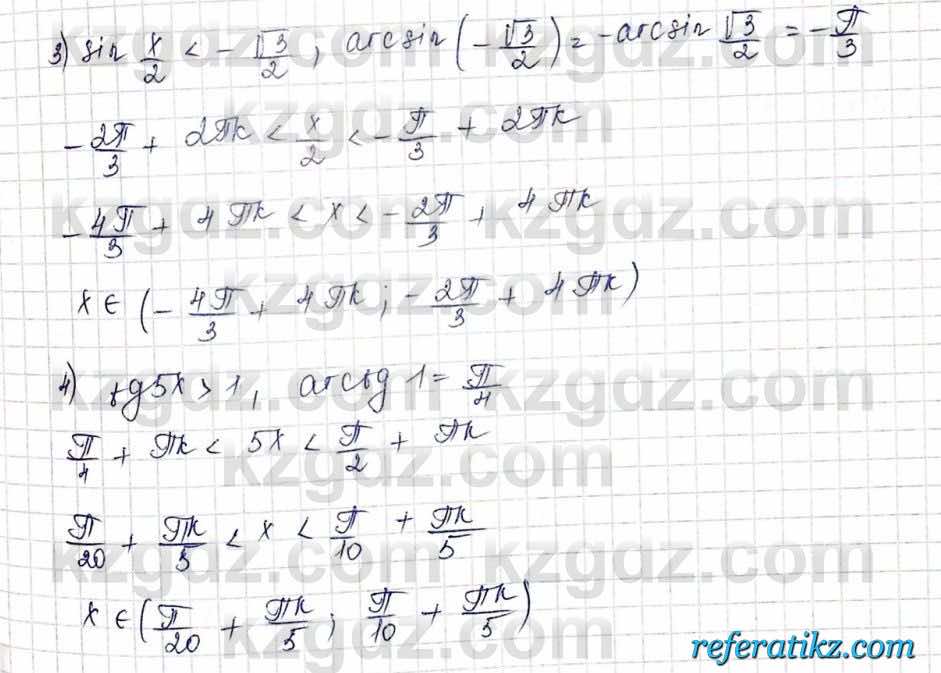 3) sin x/2 < -√3/2, arcsin(-√3/2) = -arcsin √3/2 = -π/3
-2π/3 + 2πk < x/2 < -π/3 + 2πk
-4π/3 + 4πk < x < -2π/3 + 4πk
x ∈ (-4π/3 + 4πk; -2π/3 + 4πk)
4) tg5x > 1, arctg 1 = π/4
π/4 + πk < 5x < π/2 + πk
π/20 + πk/5 < x < π/10 + πk/5
x ∈ (π/20 + πk/5; π/10 + πk/5)
kzgdz.com
referatikz.com